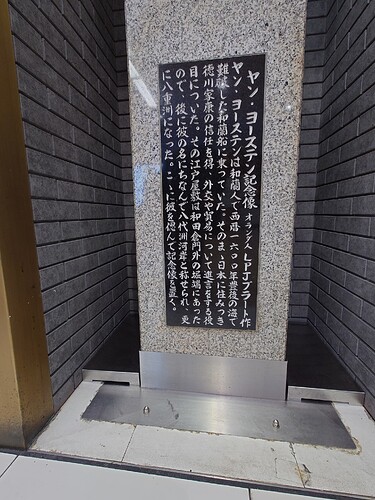 ヤン・ヨーステン記念像 オランダ人 LPJブラート作
ヤン・ヨーステンは和蘭人で西暦一六〇〇年豊後の海で
難破した和蘭船に乗っていた。そのまゝ日本に住みつき
徳川家康の信任を得、外交や貿易について進言をする役
目についた。その江戸屋敷は和田倉門外の堀端にあった
ので、後に彼の名にちなんで八代洲河岸と称せられ、更
に八重洲になった。こゝに彼を偲んで記念像を置く。